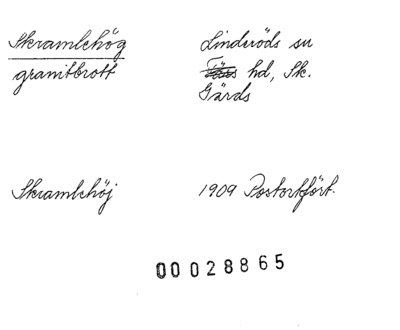 Skramlehög
granitbrott
Linderöds sn
Färs hd, Sk.
Gärds
Skramlehöj
1909 Postortfört.
00028865